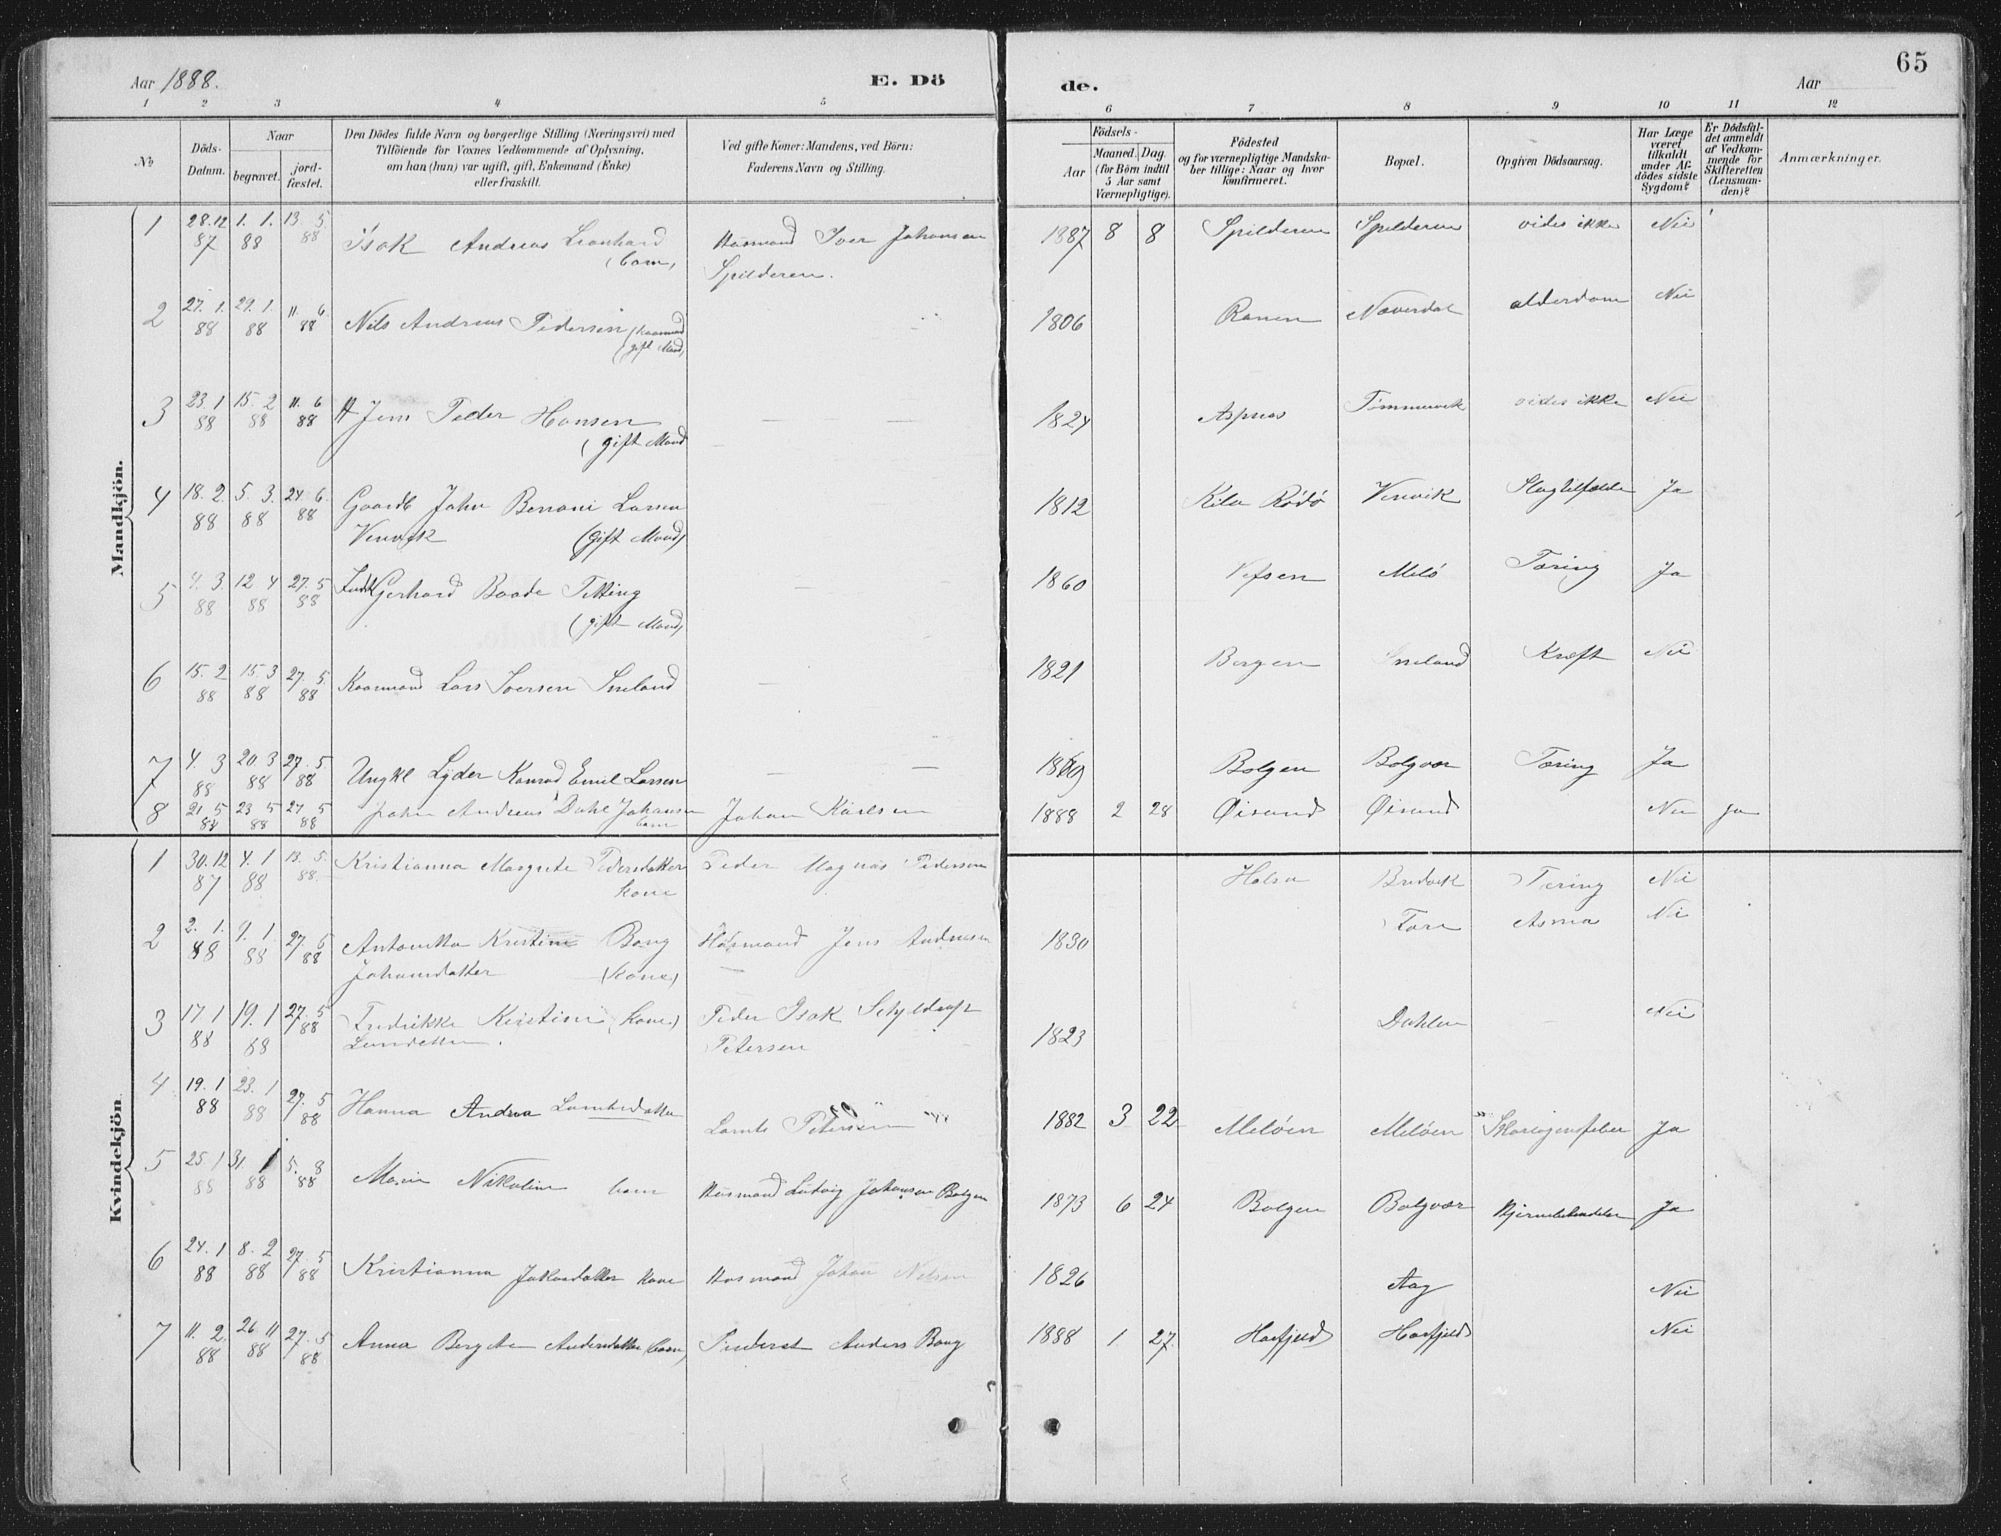 65
Aar 1888. E. Dö de. Aar
1 2 3 4 5 6 7 8 9 10 11 12
No
Döds-Datum.
Naar
begravet.
jord-fæstet.
Den Dödes fulde Navn og borgerlige Stilling (Næringsvei) med
Tilföiende for Voxnes Vedkommende af Oplysning,
om han (hun) var ugift, gift, Enkemand (Enke)
eller fraskilt.
Ved gifte Koner: Mandens, ved Börn:
Faderens Navn og Stilling.
Födsels-
Aar
Maaned. Dag.
(for Börn indtil
5 Aar samt
Værnepligtige).
Födested
og for værnepligtige Mandska-
ber tillige: Naar og hvor
konfirmeret.
Bopæl.
Opgiven Dödsaarsag.
Har Læge
været
tilkaldt
under Af-
dödes sidste
Sygdom?
Er Dödsfal-
det anmeldt
af Vedkom-
mende for
Skifteretten
(Lensman-
den)?
Anmærkninger.
Mandkjön.
1 28.12 87 1. 1. 88 13. 5 88 Isak Andreas Leonhard (barn) Husmand Iver Johansen Spilderen. 1887 8 8 Spilderen Spilderen vides ikke Nei
2 27. 1. 88 29. 1. 88 11. 6 88 Nils Andreas Pedersen (kaarmand (gift Mand) 1806 Ranen Næverdal alderdom Nei
3 23. 1 88 15. 2 88 11. 6 88 Jens Peder Hansen (gift Mand — — 1824 Aspnes Tømmervik vides ikke Nei
4 18. 2. 88 5. 3. 88 24 6. 88 Gaardb John Benoni Larsen Vervik (gift Mand) 1812 Kila Rødø Vervik Slagtilfælde Ja
5 4. 3 88 12 4 88 27. 5 88 Gerhard Baade Tetting (gift Mand) — 1860 Vefsen Melø Tæring Ja
6 15. 2 88 15. 3 88 27. 5. 88 Kaarmand Lars Iversen Sneland — 1821 Bergen Sneland Kræft Nei
7 4. 3 88 20. 3 88 27. 5 88 Ungkl Lyder Konrad Emil Larsen — — 1869 Bolgen Bolgvær Tæring Ja
8 21. 5 88 23 5 88 27. 5 88 John Andreas Dahl Johansen barn Johan Karlsen 1888 2 28 Øisund Øisund Nei ja
Kvindekjön
1 30.12 87 4. 1 88 13. 5. 88. Kristianna Margrete Pedersdatter kone Peder Magnus Pedersen Halsa Bredvik Tæring Nei
2 2. 1. 88 9. 1 88 27. 5 88 Antonetta Kristine Bang Johansdatter (kone) Husmand Jens Andersen 1830 Fore Asma Nei
3 17. 1 88 19. 1 88 27. 5 88 Fredrikke Kristine (kone) Peder Isak Schjeldrup Petersen 1823 Dahlen — Nei
4 19. 1 88 23. 1 88 27. 5 88 Hanna Andrea Lorntsdatter Lornts Petersen 1882 3 22 Meløen Meløen Skarlagensfeber Ja
5 25. 1 88 31. 1 88 5. 8 88 Maren Nikoline barn Husmand Ludvig Johansen Bolgen 1873 6 24 Bolgen Bolgvær Hjernebetændelse Ja
6 24. 1 88 8. 2 88 27. 5 88 Kristianna Jakobsdatter kone Husmand Johan Nilsen 1826 Aag Nei
7 11. 2. 88 26. 11 88 27. 5 88 Anna Bergitta Andersdatter (barn) Anders Bang 1888 1 27. Havfjeld Havfjeld Nei